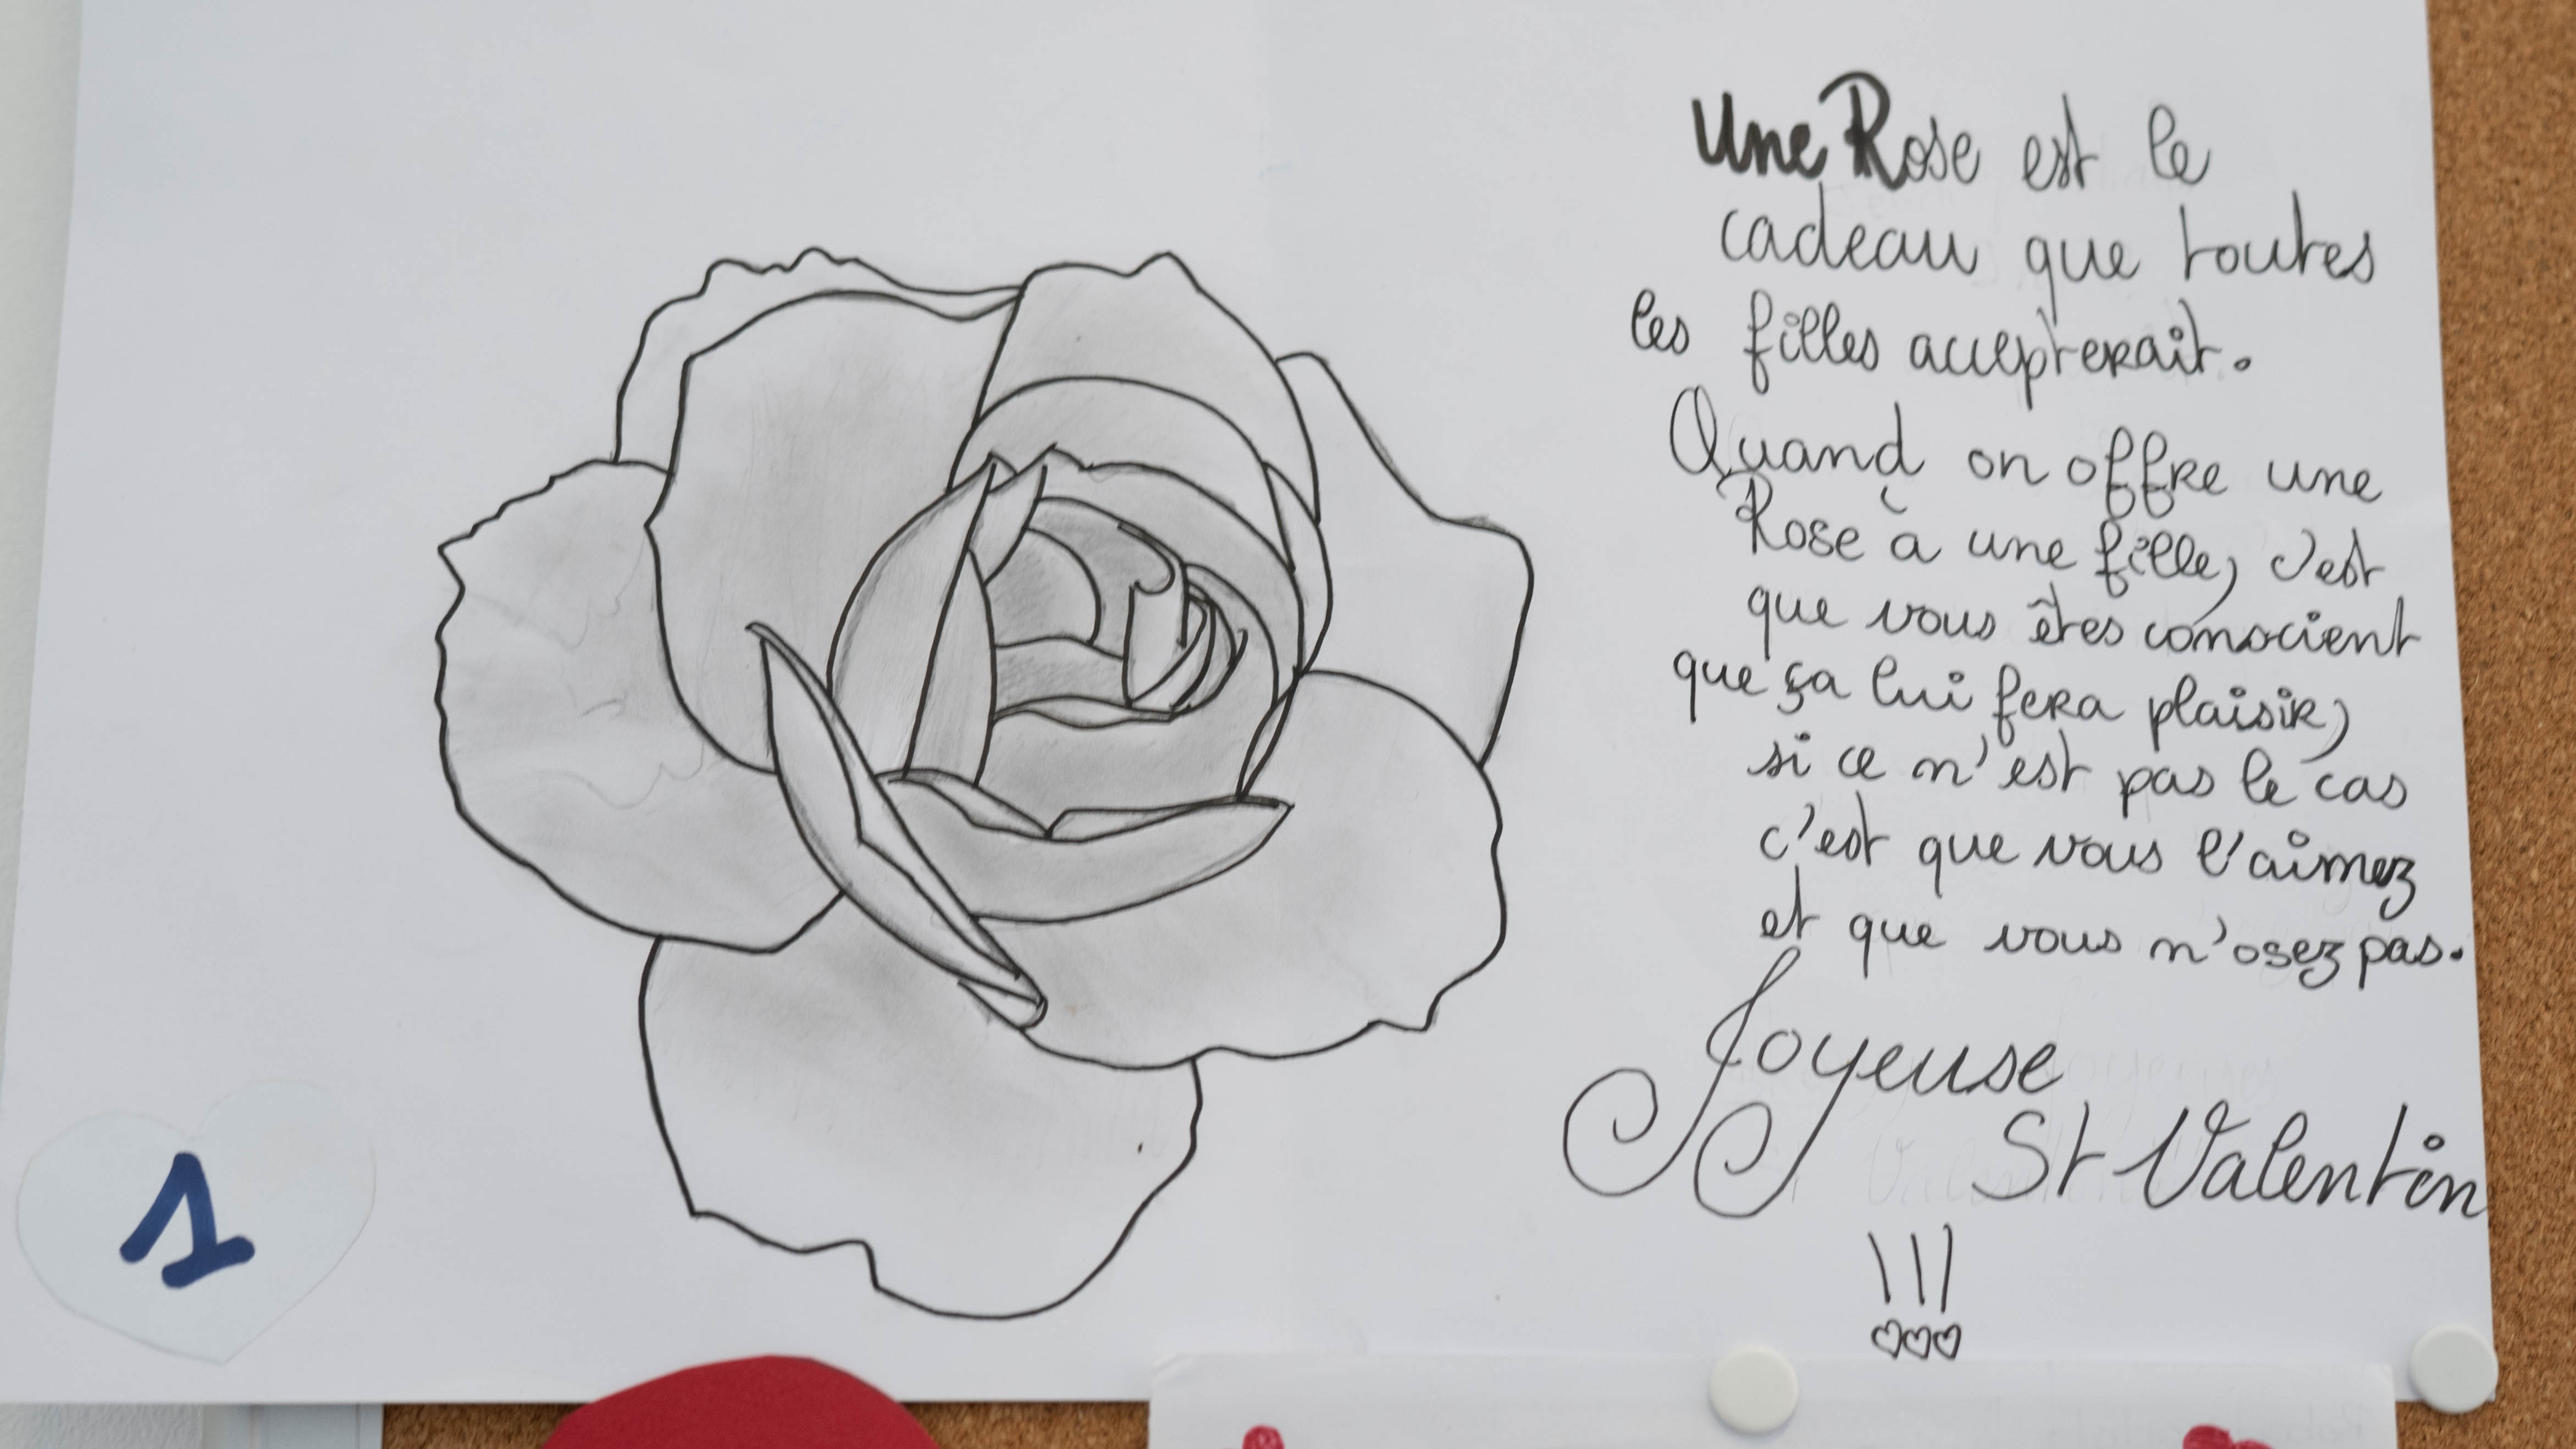 Une Rose est le
cadeau que toutes
les filles accepterait.
Quand on offre une
Rose à une fille, c'est
que vous êtes conscient
que ça lui fera plaisir,
si ce n'est pas le cas
c'est que vous l'aimez
et que vous n'osez pas.
Joyeuse
St Valentin
!!!
1